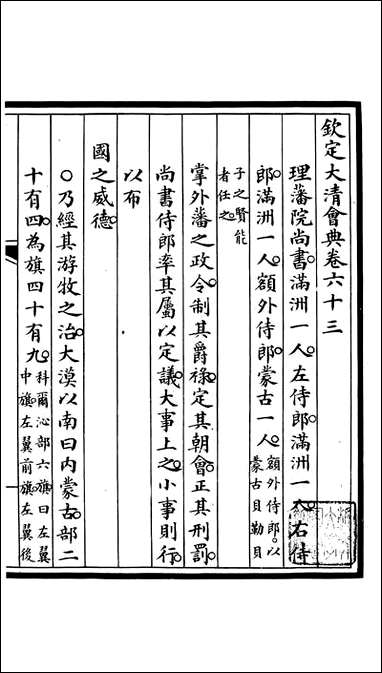 欽定大清會典卷六十三
理藩院尚書滿洲一人左侍郎滿洲一人右侍
郎滿洲一人額外侍郎蒙古一人額外侍郎以蒙古貝勒貝
子之賢能者任之
掌外藩之政令制其爵祿定其朝會正其刑罰
尚書侍郎率其屬以定議大事上之小事則行
以布
國之威德
○乃經其游牧之治大漠以南曰內蒙古部二
十有四為旗四十有九科爾沁部六旗曰左翼中旗左翼前旗左翼後